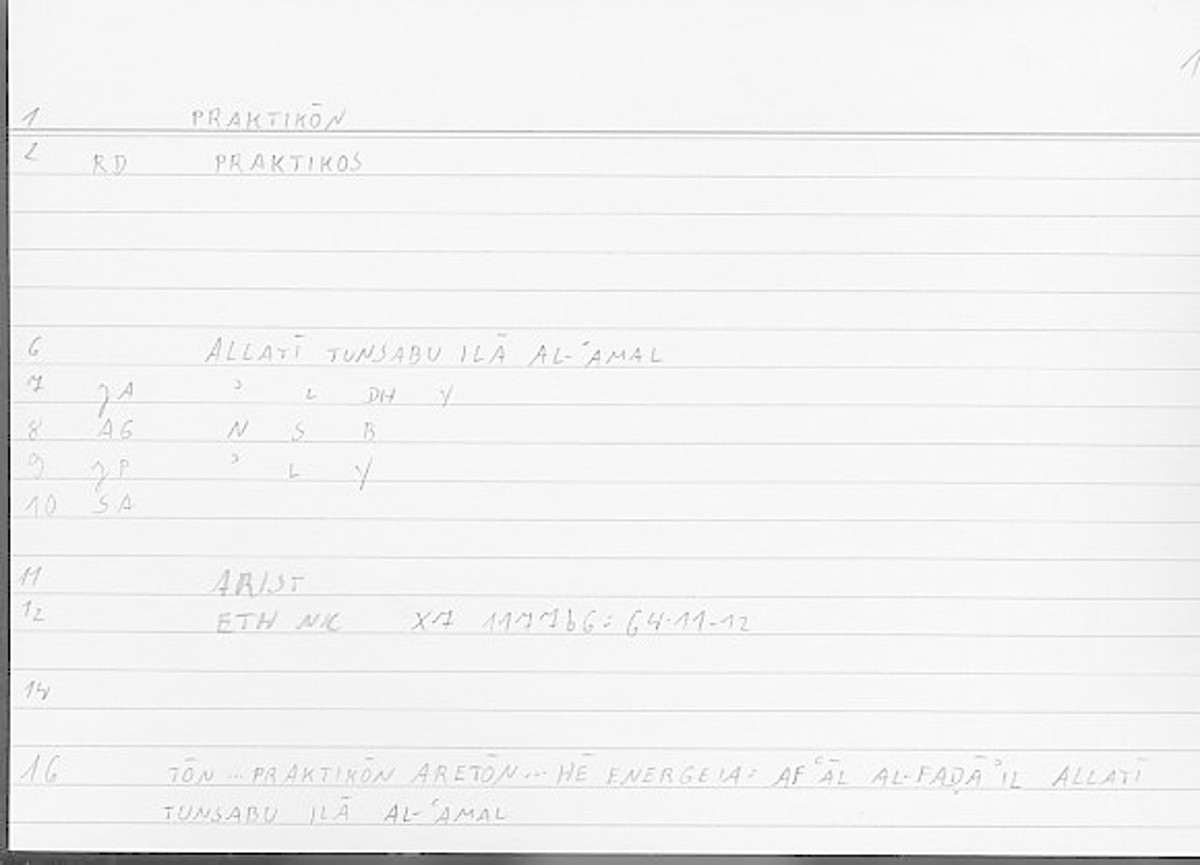 1
1 PRAKTIKŌN
2 RD PRAKTIKOS
6 ALLATĪ TUNSABU ILĀ AL-ʿAMAL
7 ȝA ʾ L DH Y
8 AG N S B
9 ȝP ʾ L Y
10 SA
11 ARIST
12 ETH NIC X7 1177b6: 64.11-12
14
16 TŌN ... PRAKTIKŌN ARETŌN ... HĒ ENERGEIA: AFʿĀL AL-FAḌĀʾIL ALLATĪ
TUNSABU ILĀ AL-ʿAMAL